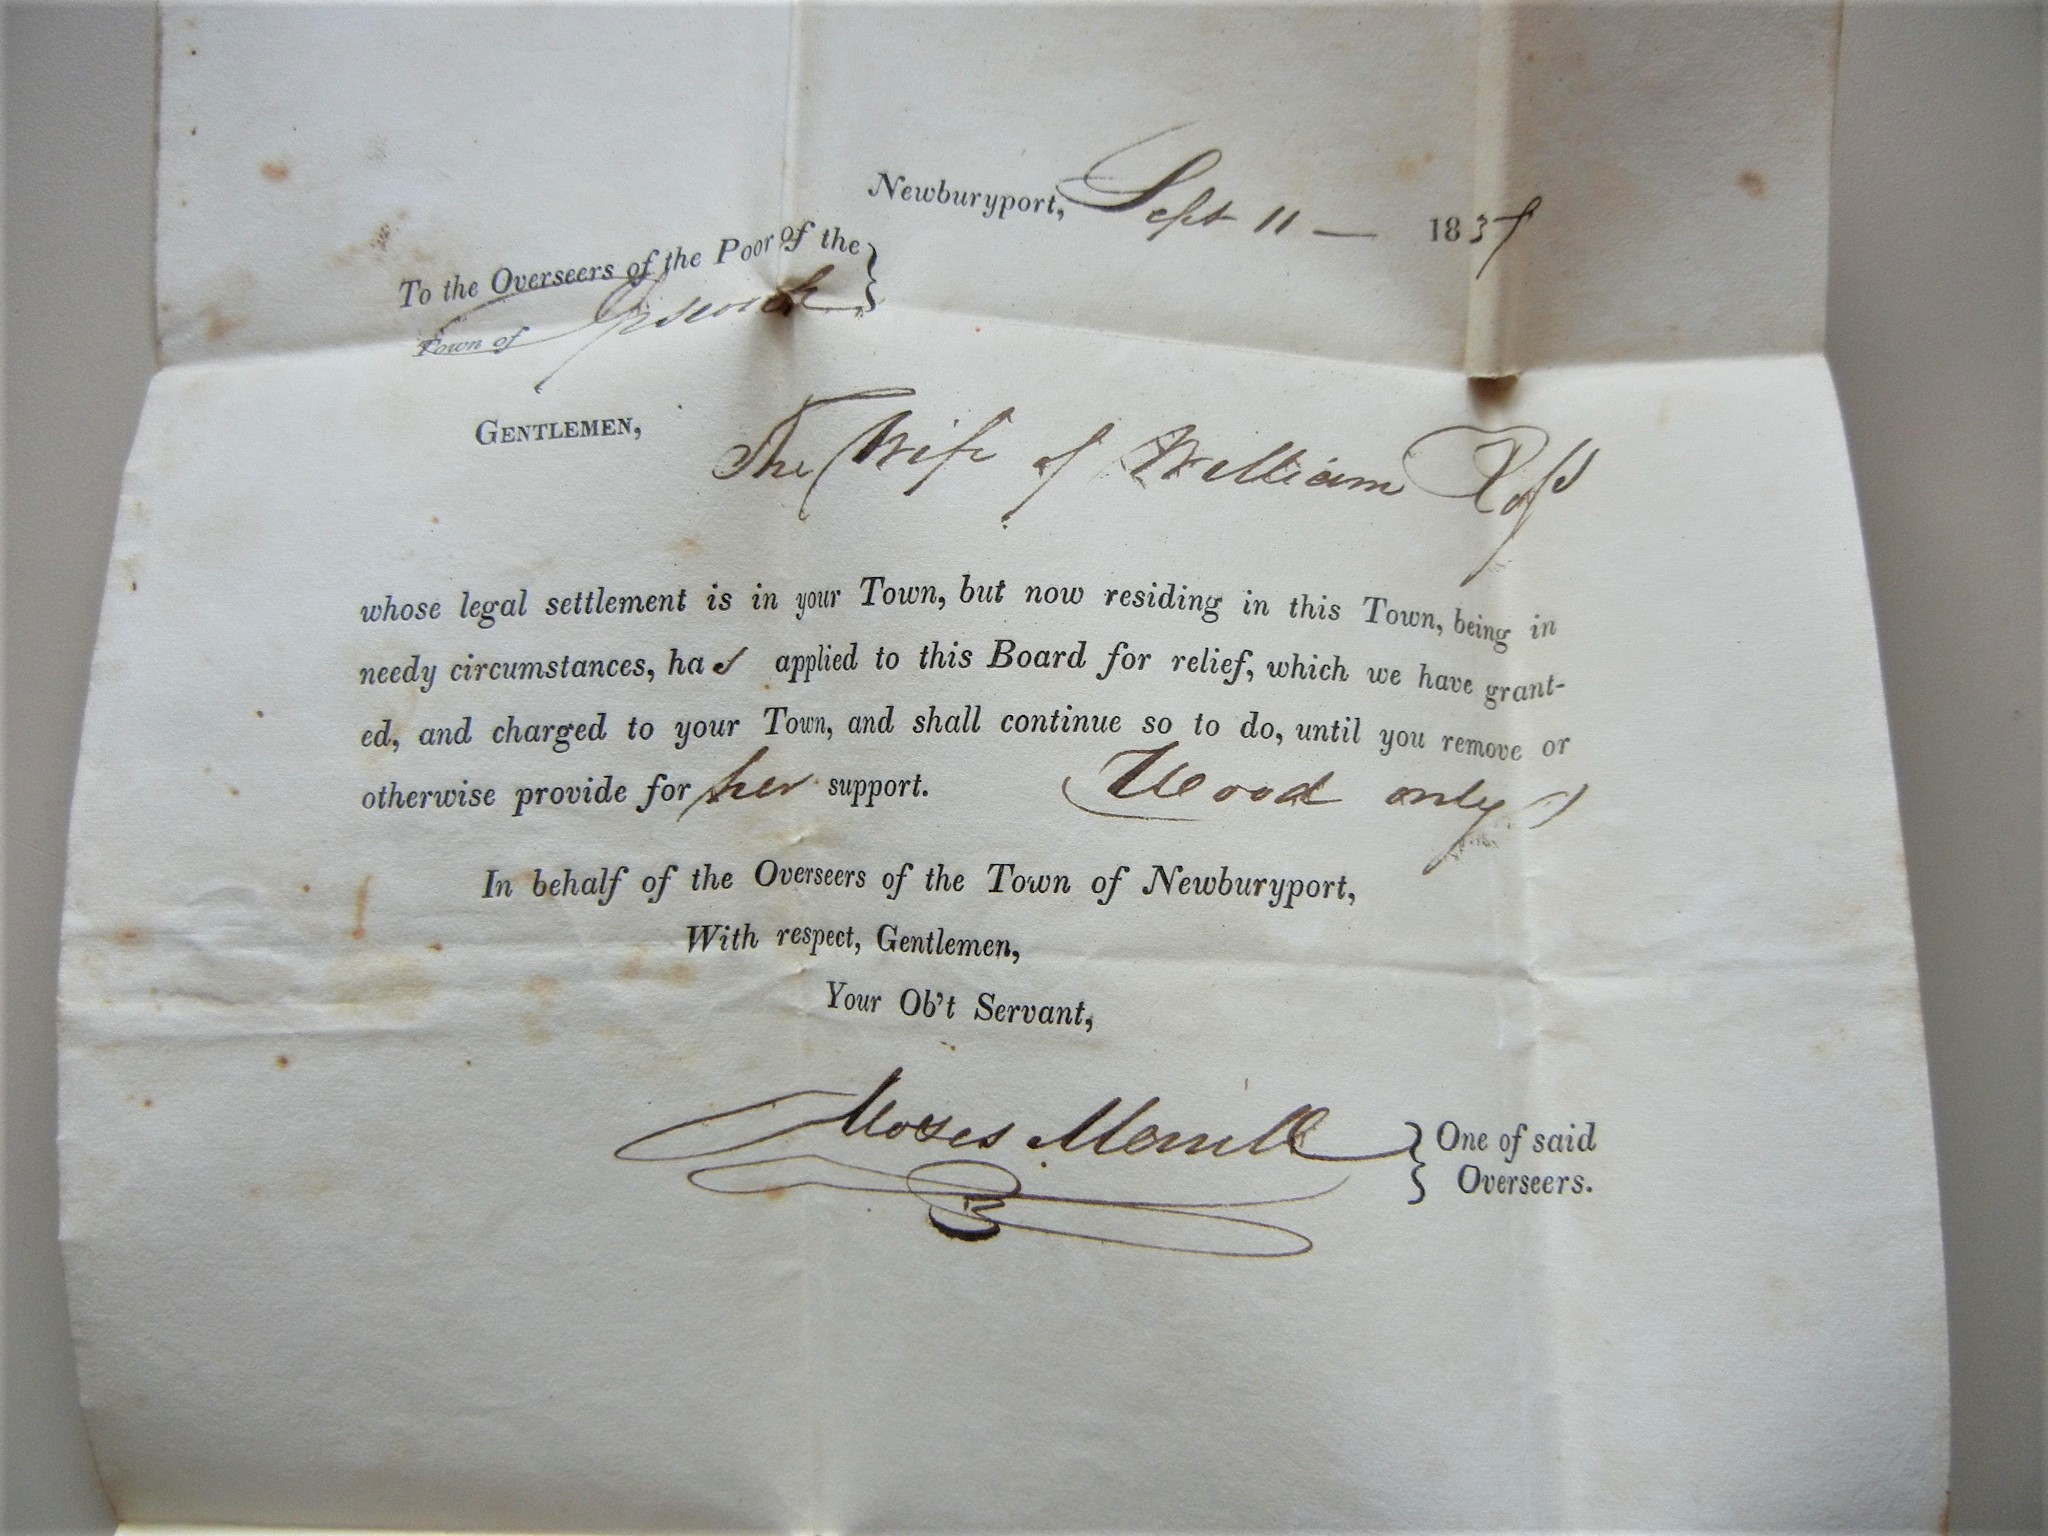 Newburyport, Sept 11 — 1837
To the Overseers of the Poor of the
Town of Ipswich
GENTLEMEN,
The Wife of William Ross
whose legal settlement is in your Town, but now residing in this Town, being in
needy circumstances, has applied to this Board for relief, which we have grant-
ed, and charged to your Town, and shall continue so to do, until you remove or
otherwise provide for her support. (Wood only)
In behalf of the Overseers of the Town of Newburyport,
With respect, Gentlemen,
Your Ob't Servant,
Moses Merrill } One of said
Overseers.